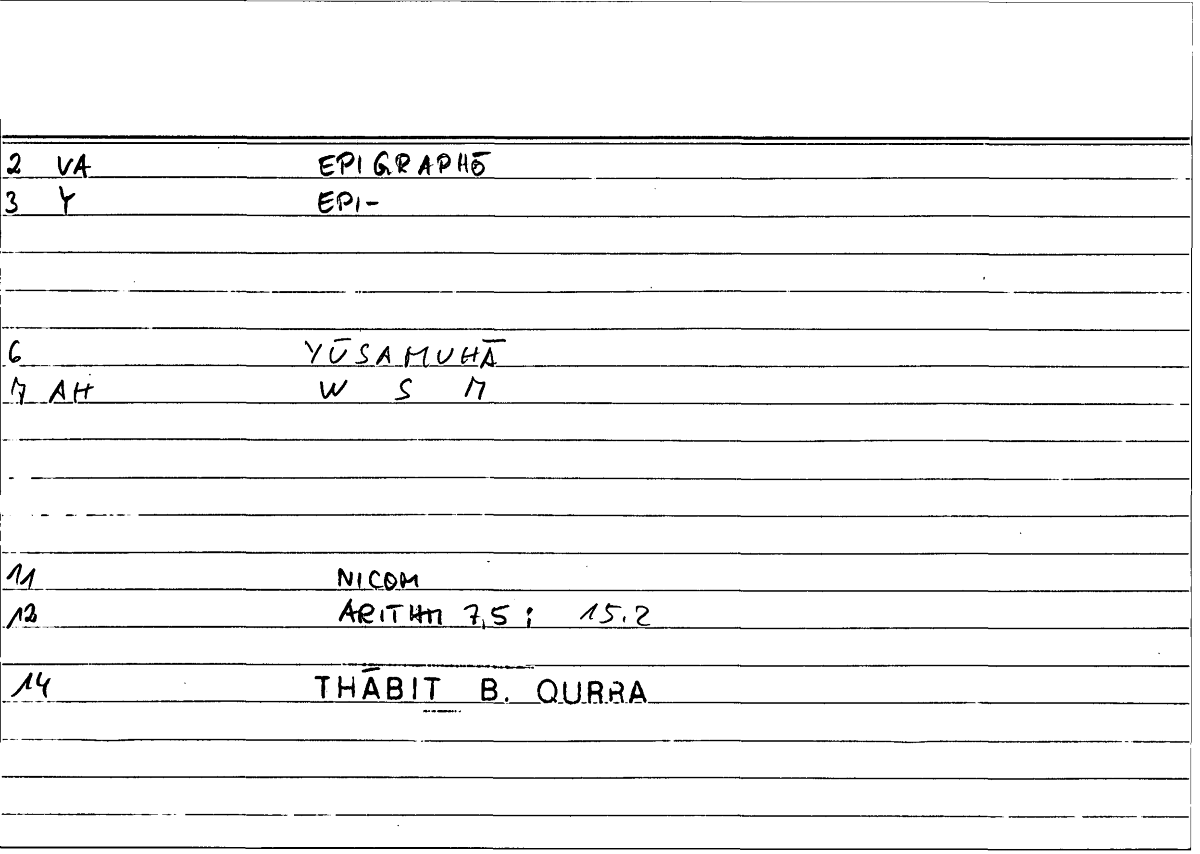 2 VA EPIGRAPHŌ
3 Y EPI-
6 YŪSAMUHĀ
7 AH W S M
11 NICOM
12 ARITHM 7,5 ; 15.2
14 THĀBIT B. QURRA